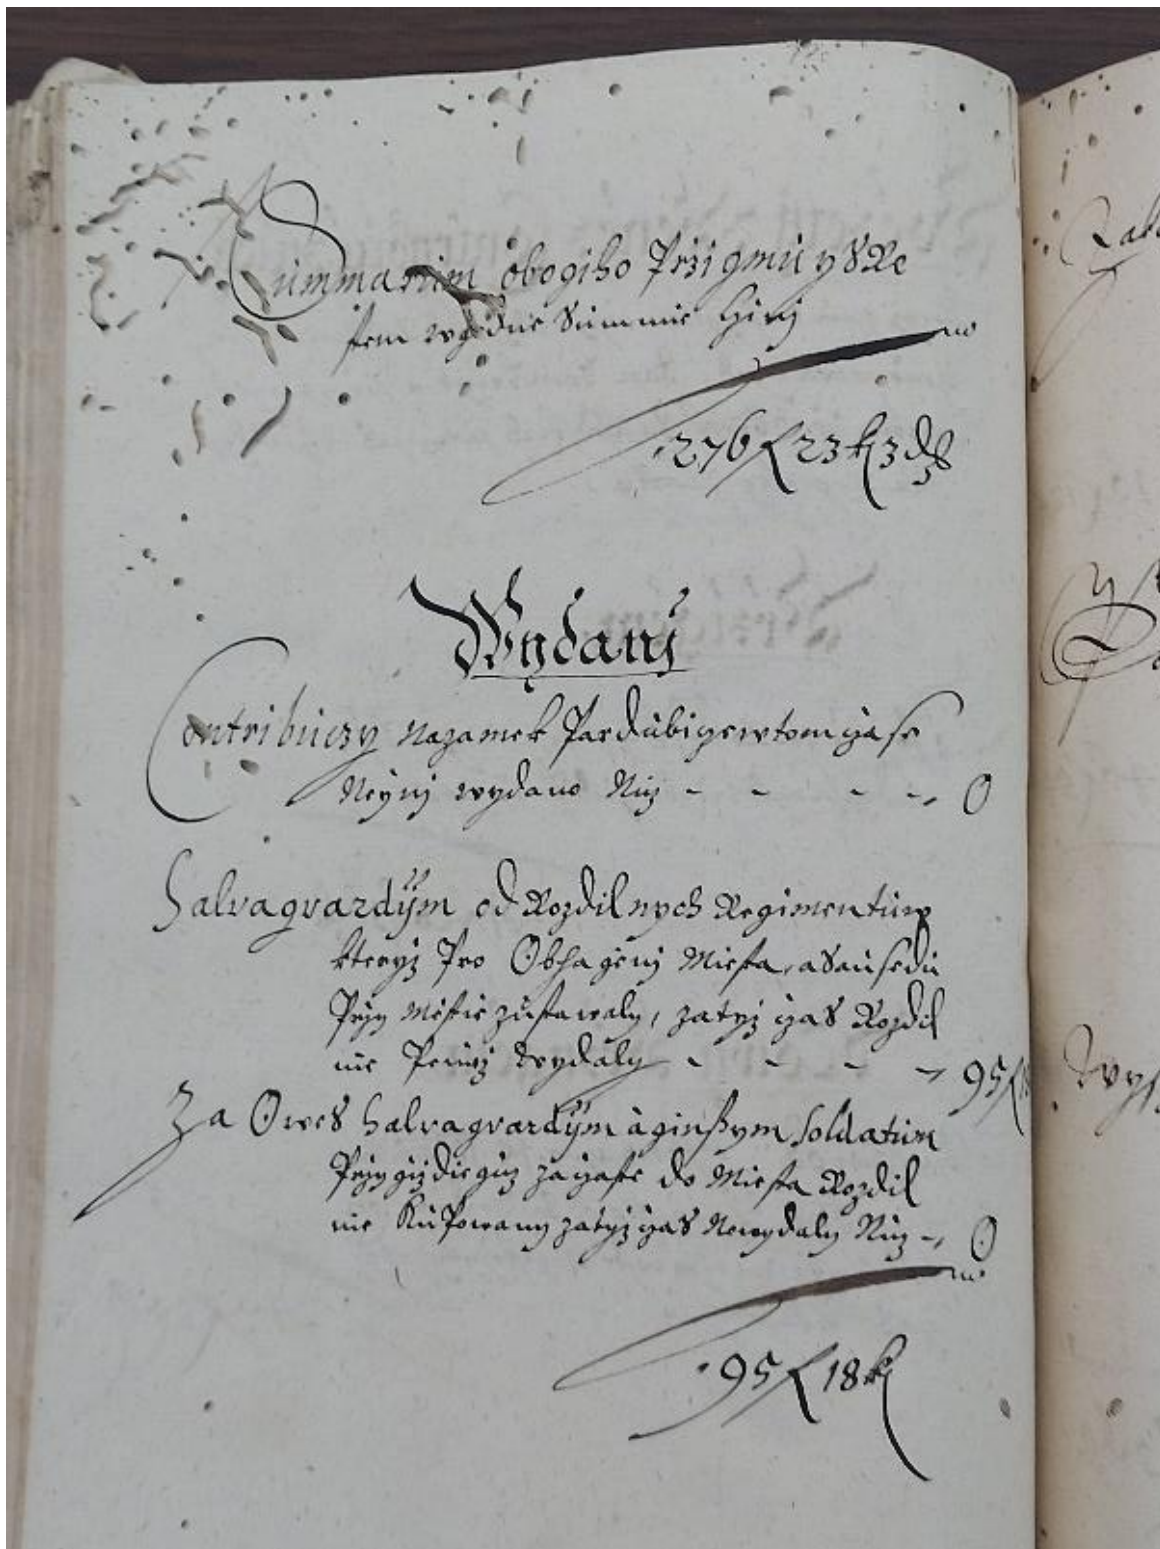 Summarum obogiho Przigmu y sRe
stem wgedne Summie Cžinj
276 f 23 k 3 d
Wydanj
Contribuczy nazamek Pardubicze wtom cžase
Neynj wydano Nicz - - - - 0
Salvagvardÿm od Rozdilnych Regimentuw
kteryž Pro Obhagenj Miesta, a Sausedu
Przy Mistie zustawaly, zatyž cžas Rozdil
nie Peniz Wydaly - - - - 95 f
Za Owes Salvagvardÿm a ginssym Soldatum
Przy gizdiegicz zacžaste do Miesta Rozdil
nie Kupowany zatyž cžas Newydaly Nicz - 0
95 f 18 k